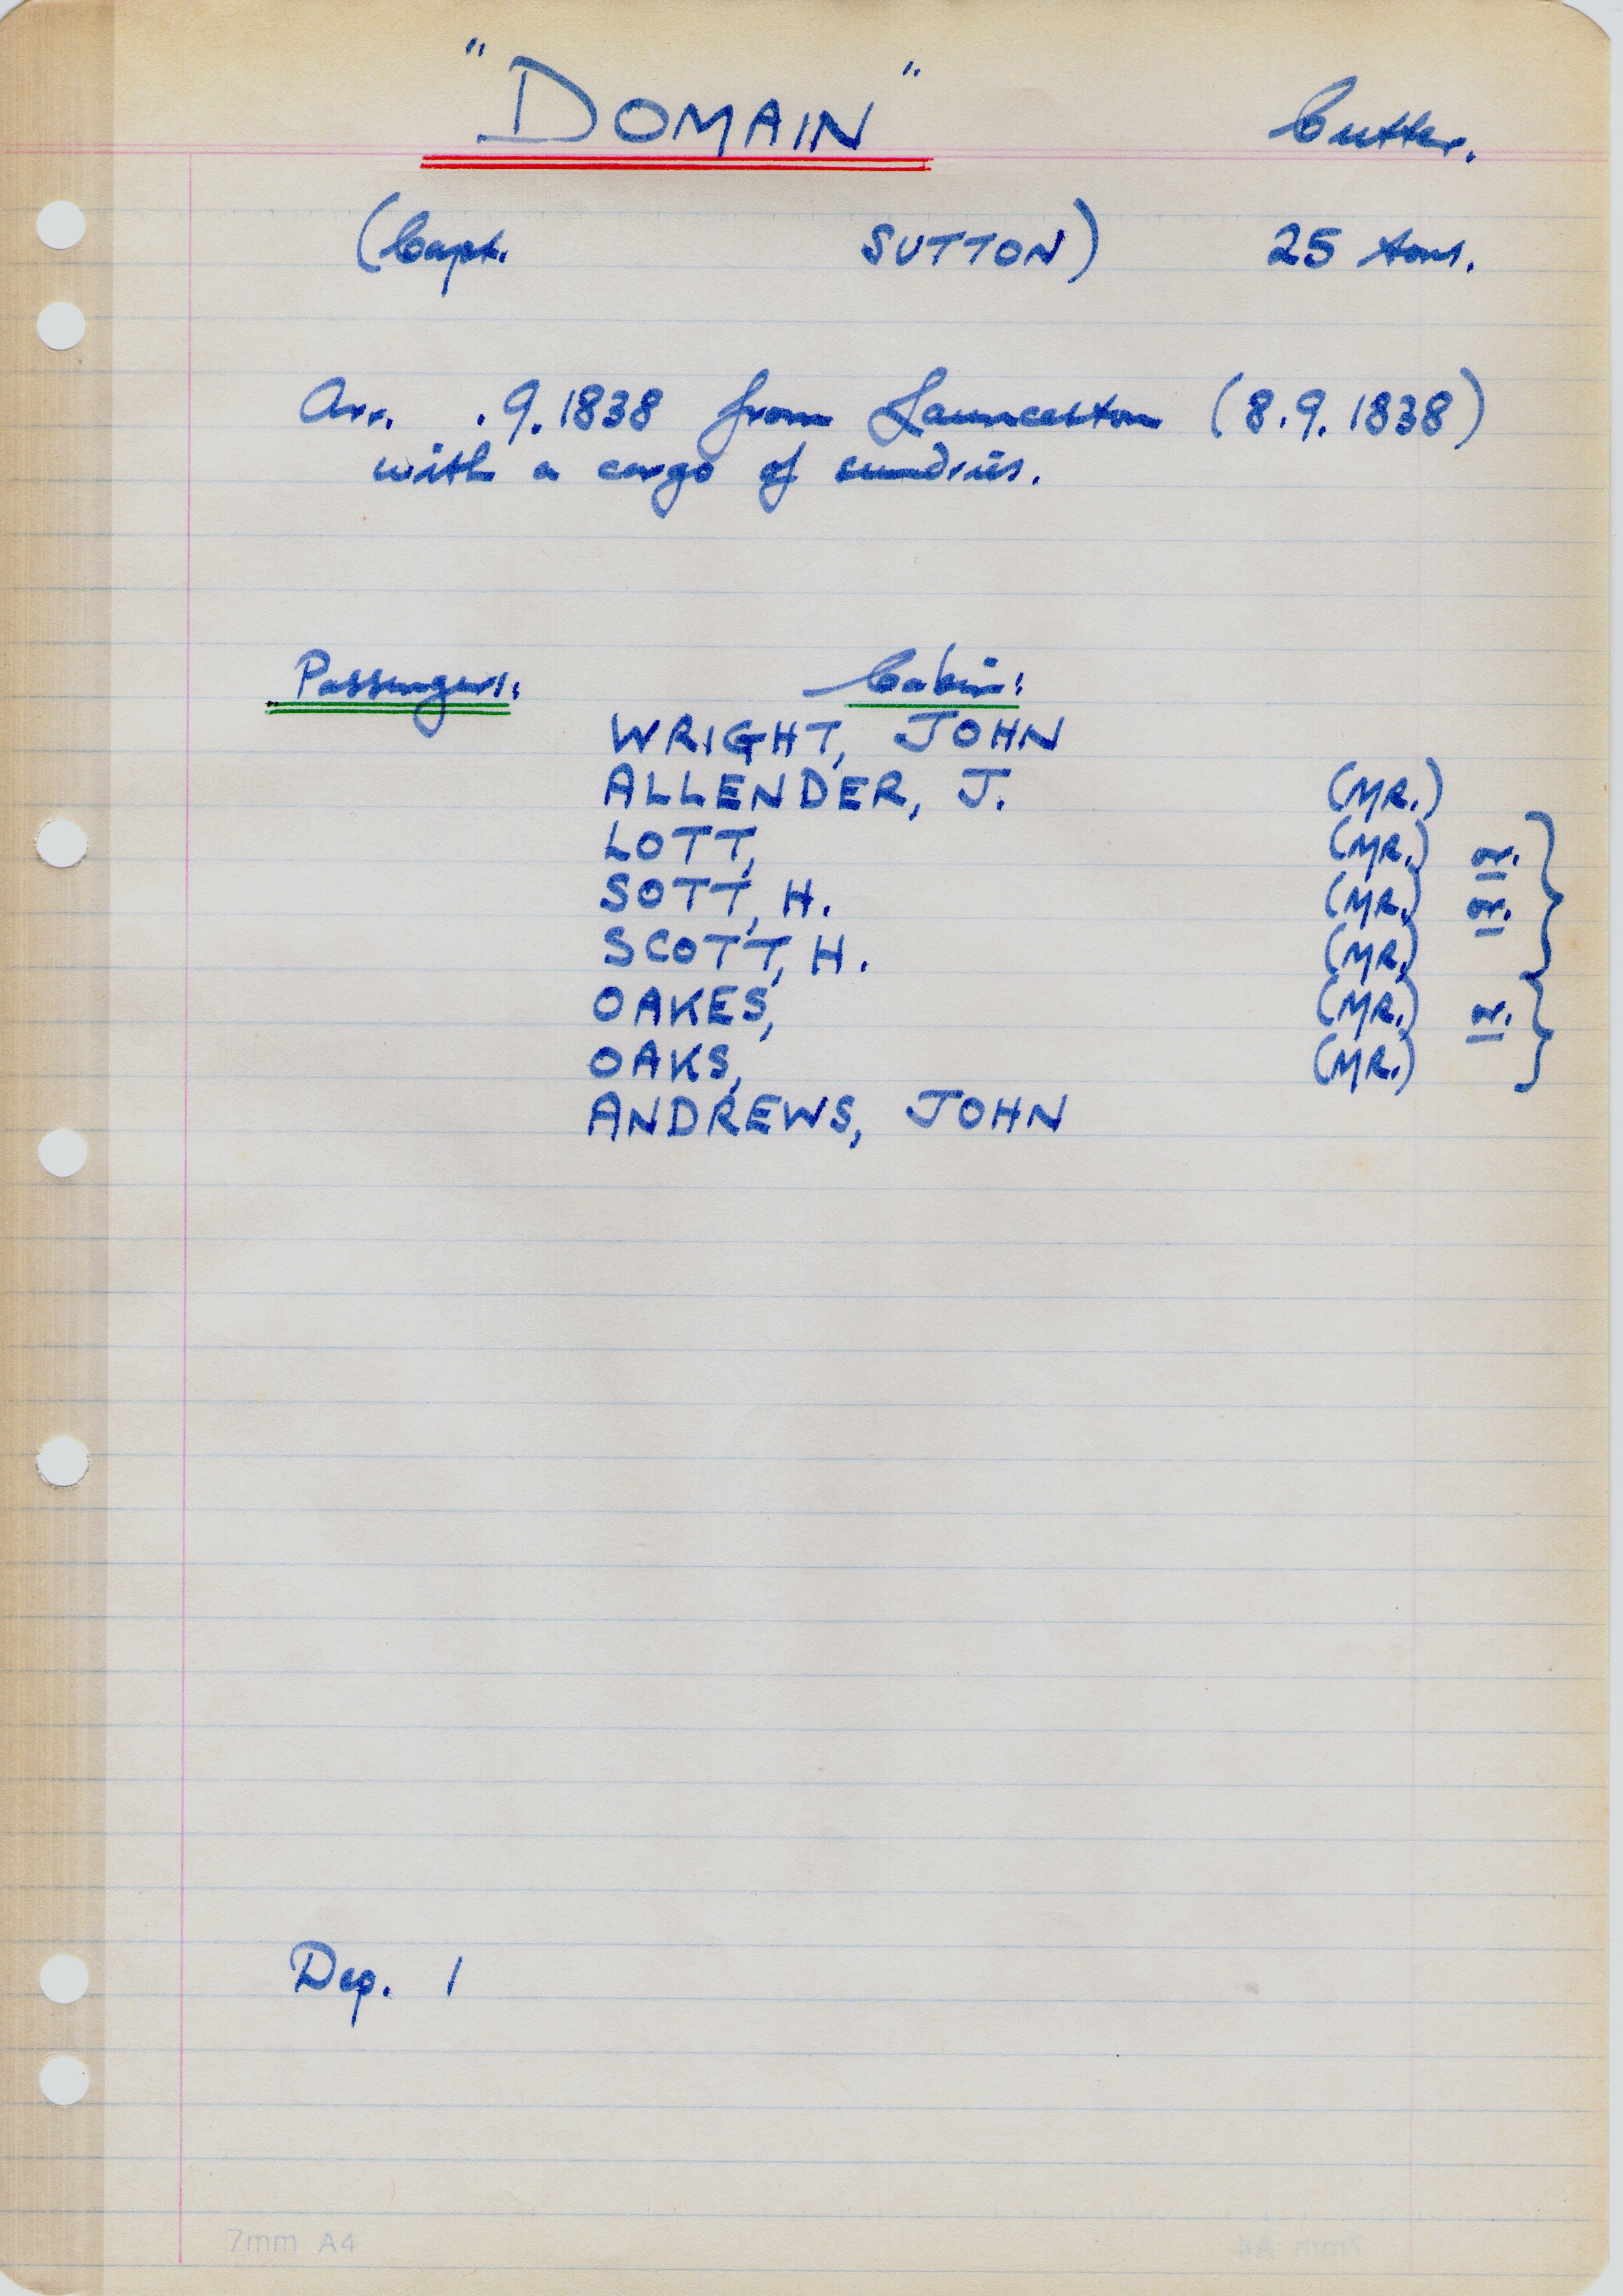 "DOMAIN" Cutter.
(Capt. SUTTON) 25 tons.
Arr. .9.1838 from Launceston (8.9.1838)
with a cargo of sundries.
Passengers: Cabin:
WRIGHT, JOHN
ALLENDER, J. (MR.)
LOTT, (MR.) or.
SOTT, H. (MR.) or.
SCOTT, H. (MR.)
OAKES, (MR.) or.
OAKS, (MR.)
ANDREWS, JOHN
Dep. 1
7mm A4
7mm A4